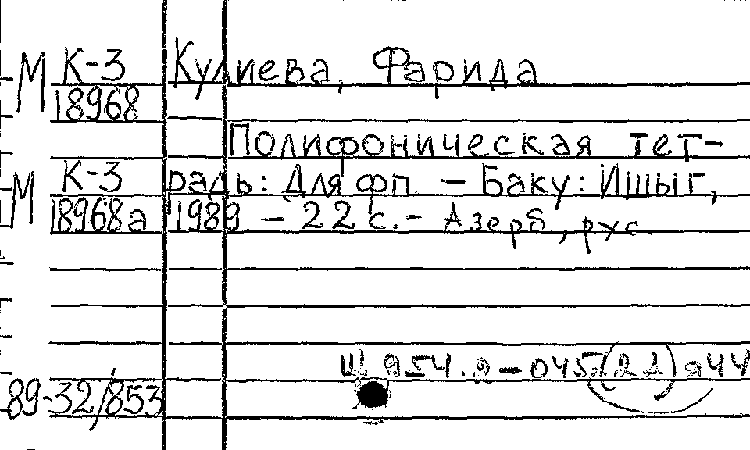 М К-3 Кулиева, Фарида
18968
Полифоническая тет-
М К-3 радь: Для фп. - Баку: Ишыг,
18968а 1989 - 22 с. - Азерб, рус.
Щ 954.2-045(2А)я44
89-32/853